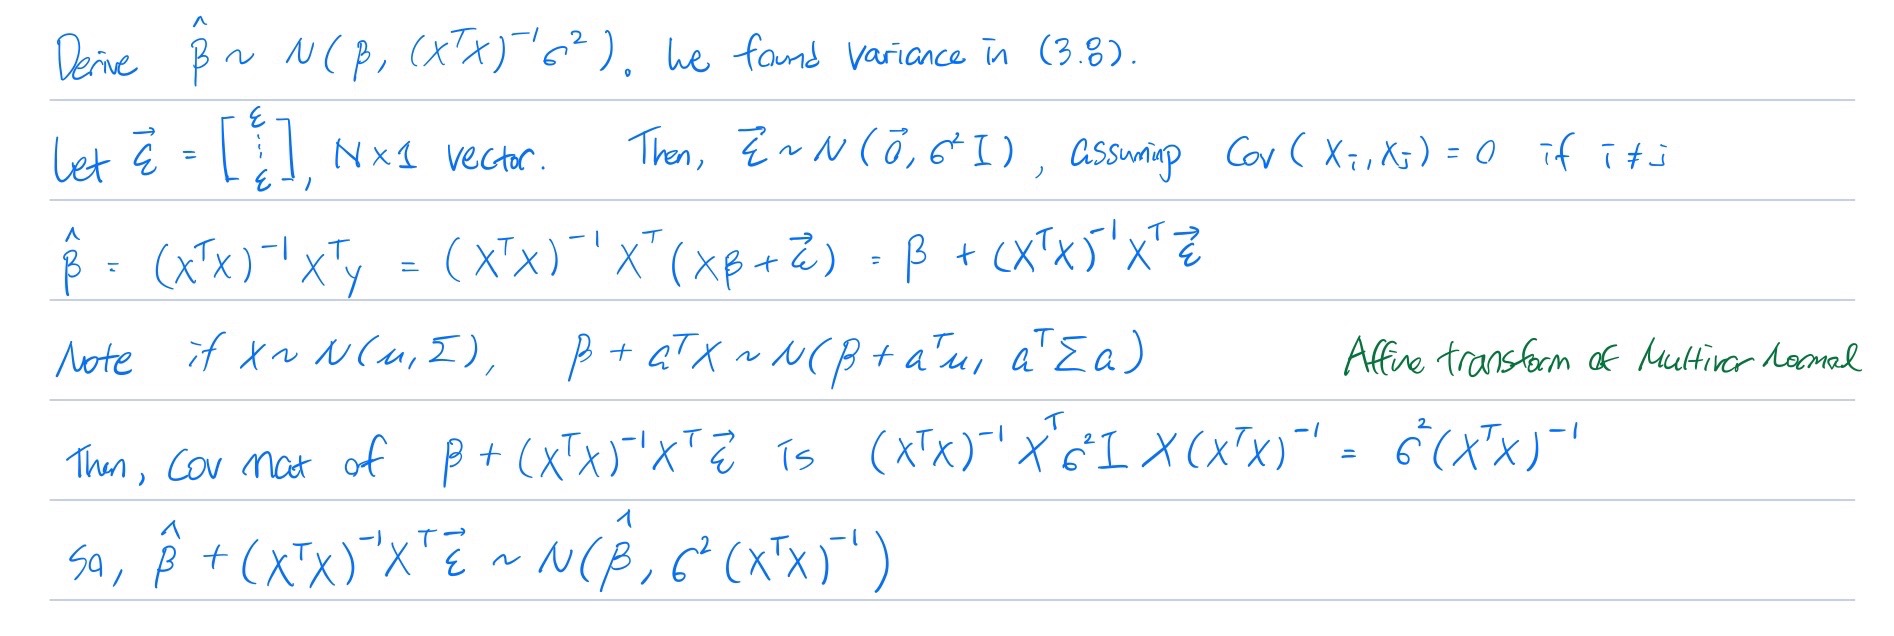 Derive β̂ ~ N(β, (XᵀX)⁻¹σ²). We found variance in (3.8).
Let ε⃗ = [ε ⋮ ε], N×1 vector. Then, ε⃗ ~ N(0⃗, σ²I), assuming Cov(Xᵢ, Xⱼ) = 0 if i ≠ j
β̂ = (XᵀX)⁻¹Xᵀy = (XᵀX)⁻¹Xᵀ(Xβ + ε⃗) = β + (XᵀX)⁻¹Xᵀε⃗
Note if X ~ N(u, Σ), β + aᵀX ~ N(β + aᵀu, aᵀΣa) Affine transform of Multivar Normal
Then, Cov mat of β + (XᵀX)⁻¹Xᵀε⃗ is (XᵀX)⁻¹Xᵀσ²I X(XᵀX)⁻¹ = σ²(XᵀX)⁻¹
So, β̂ + (XᵀX)⁻¹Xᵀε⃗ ~ N(β̂, σ²(XᵀX)⁻¹)